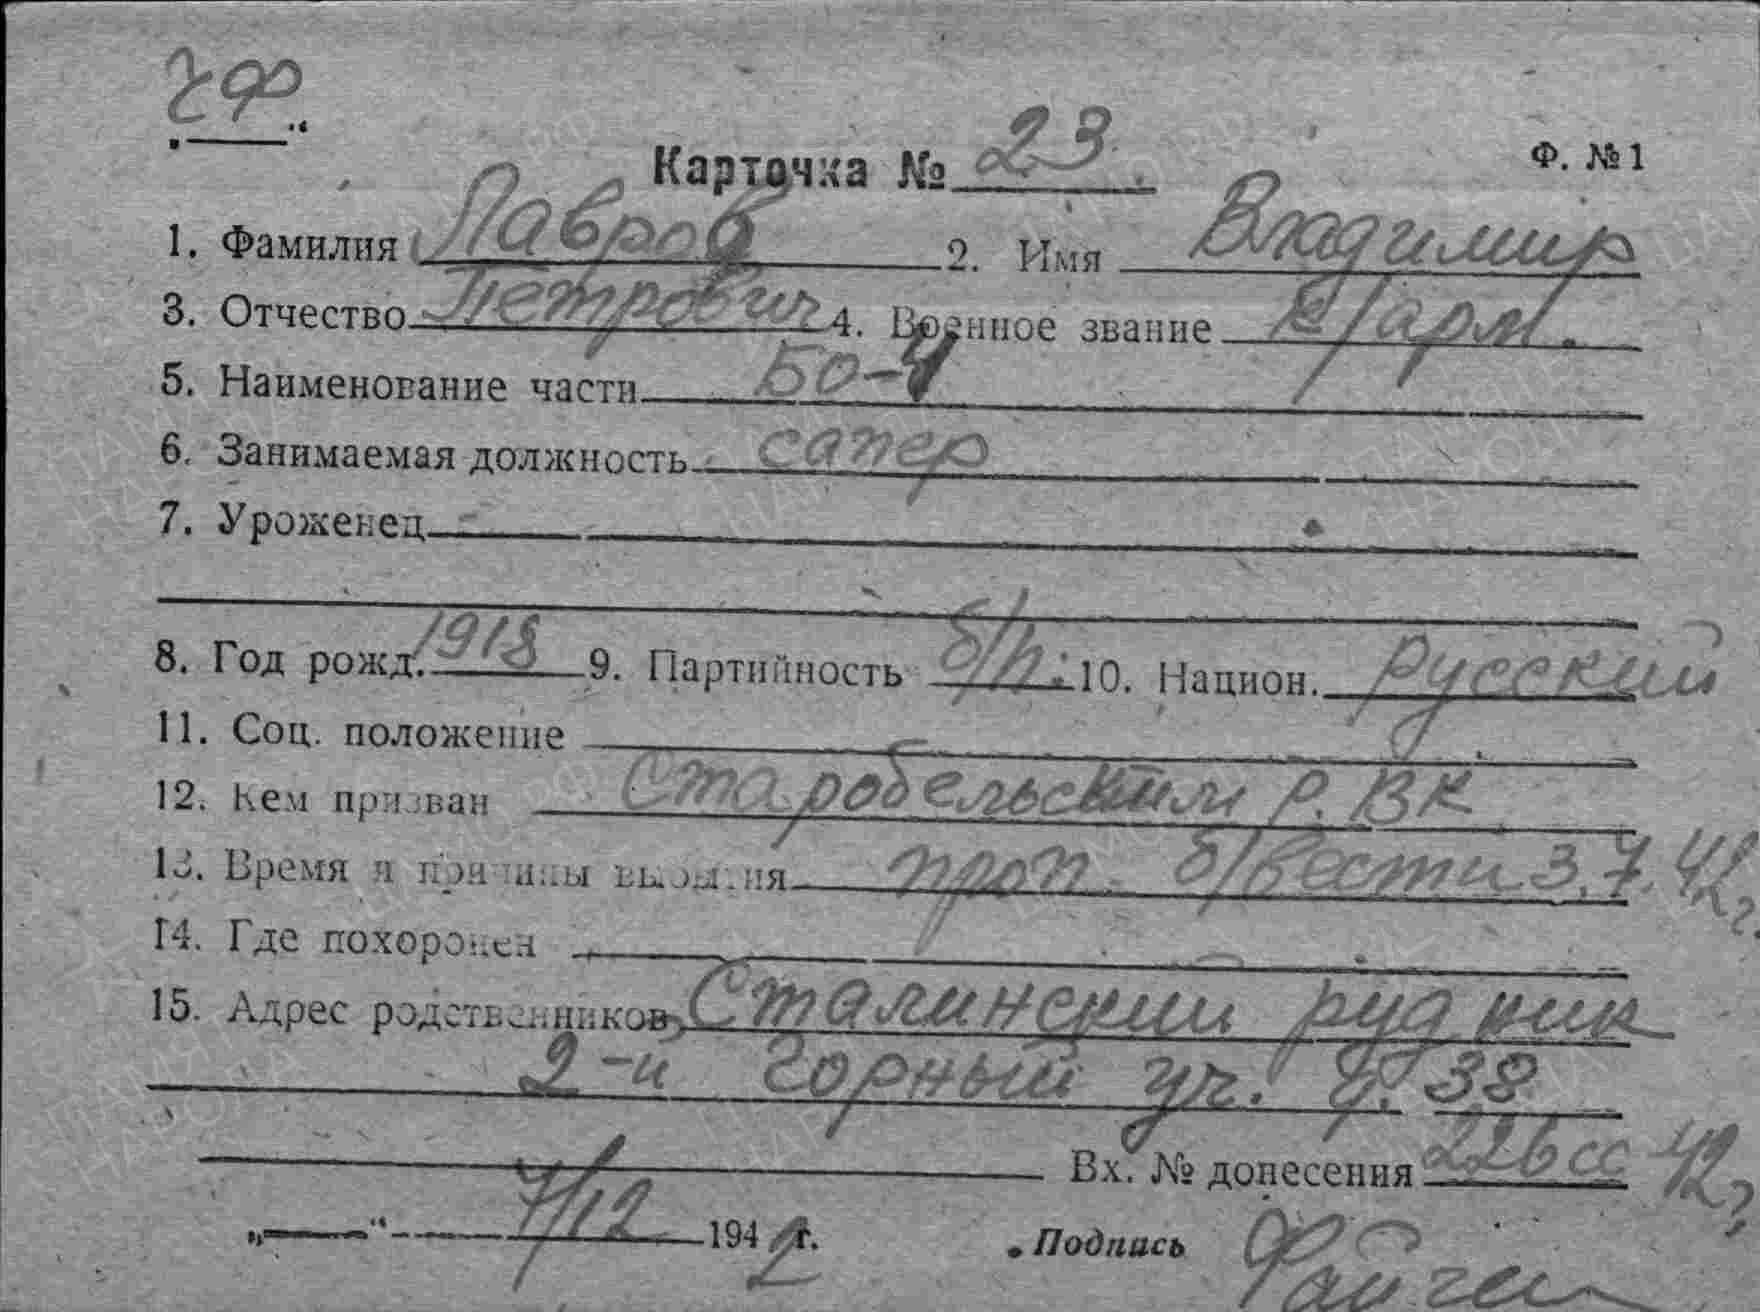 ЧФ
„ “
Карточка № 23 Ф. № 1
1. Фамилия Лавров 2. Имя Владимир
3. Отчество Петрович 4. Военное звание к/арм.
5. Наименование части БО-1
6. Занимаемая должность сапер
7. Уроженец
8. Год рожд. 1918 9. Партийность б/п. 10. Национ. Русский
11. Соц. положение
12. Кем призван Старобельским Р. ВК
13. Время и причины выбытия проп. б/вести 3.7.42 г.
14. Где похоронен
15. Адрес родственников Сталинский рудник
2-й горный уч. д. 38
Вх. № донесения 226сс 42 г
„ “ 7/12 1942 г. Подпись